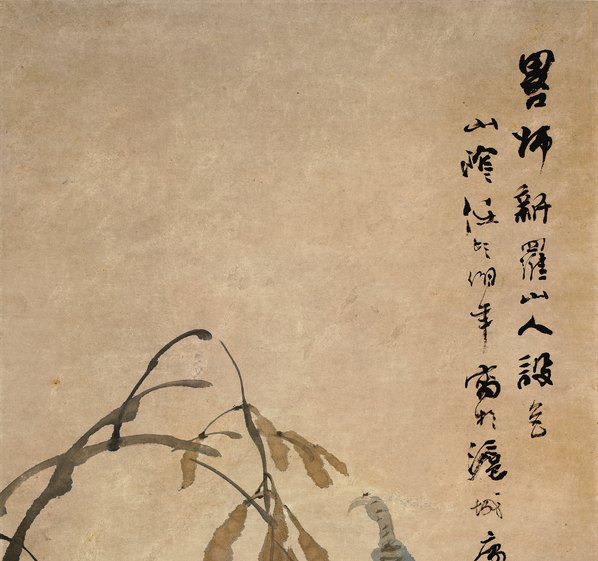 畧師新羅山人設色
山陰任頤伯年寫於滬城寓